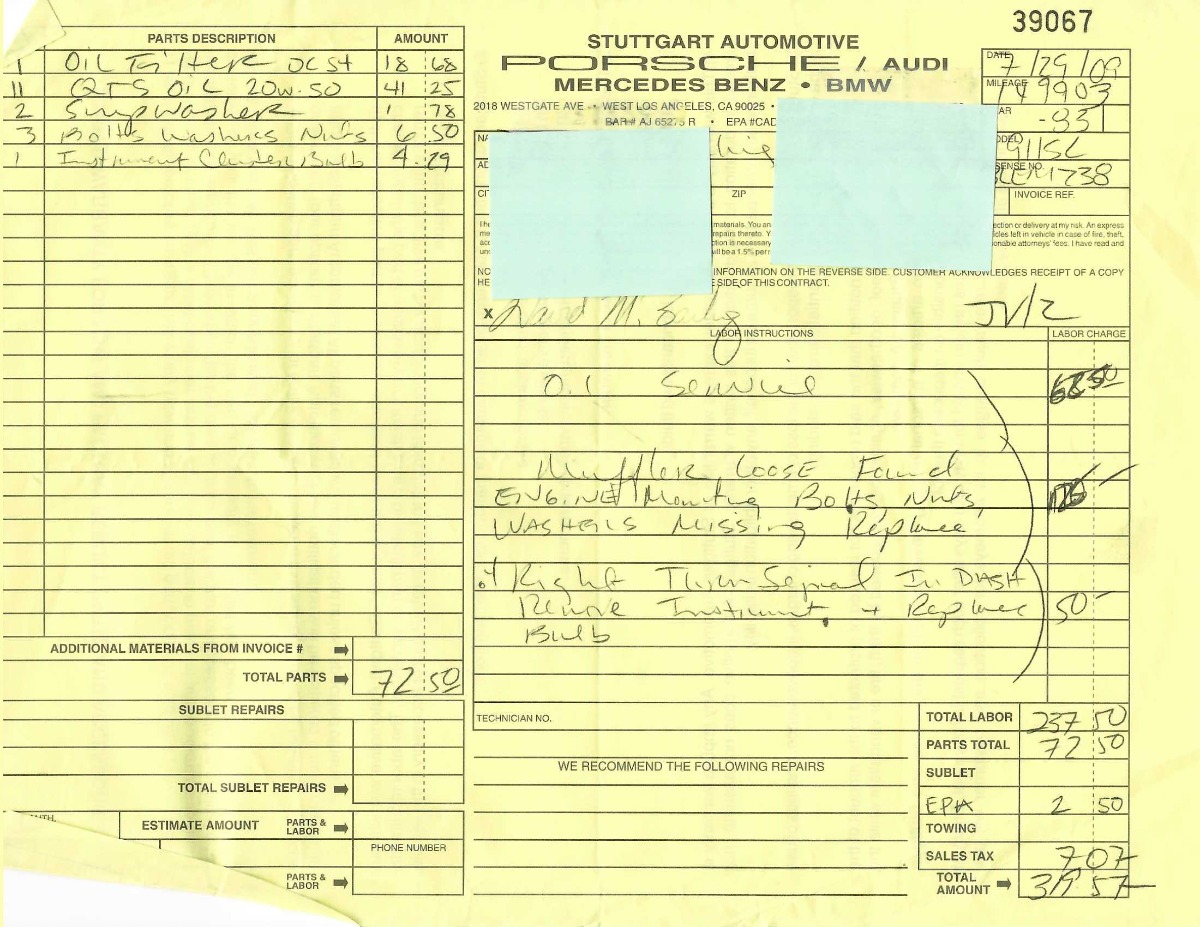 39067
PARTS DESCRIPTION AMOUNT
1 OIL FilteR OC54 18 68
11 QTS OIL 20w-50 41 25
2 SumpwasheR 1 78
3 Bolts Washers Nuts 6 50
1 Instrument Cluster Bulb 4.29
ADDITIONAL MATERIALS FROM INVOICE #
TOTAL PARTS 72 50
SUBLET REPAIRS
TOTAL SUBLET REPAIRS
ESTIMATE AMOUNT PARTS & LABOR
PHONE NUMBER
PARTS & LABOR
STUTTGART AUTOMOTIVE
PORSCHE / AUDI
MERCEDES BENZ • BMW
2018 WESTGATE AVE • WEST LOS ANGELES, CA 90025 •
BAR # AJ 65275 R • EPA #CAD
DATE 7/29/09
MILEAGE 49903
-83
911SC
ENSE NO.
1738
ZIP
INVOICE REF.
materials. You an
ction or delivery at my risk. An express
repairs thereto. Y
cles left in vehicle in case of fire, theft,
ction is necessary
onable attorneys' fees. I have read and
will be a 1.5% per
INFORMATION ON THE REVERSE SIDE. CUSTOMER ACKNOWLEDGES RECEIPT OF A COPY
HE E SIDE OF THIS CONTRACT.
X
JV/2
LABOR INSTRUCTIONS LABOR CHARGE
O.I Service 50
Muffler LOOSE Found
ENGINE Mounting Bolts, Nuts,
WASHERS Missing Replace
Right Turn Signal In DASH
Remove Instrument + Replace 50-
Bulb
TECHNICIAN NO.
WE RECOMMEND THE FOLLOWING REPAIRS
TOTAL LABOR 237 50
PARTS TOTAL 72 50
SUBLET
EPA 2 50
TOWING
SALES TAX 707
TOTAL AMOUNT 319 57